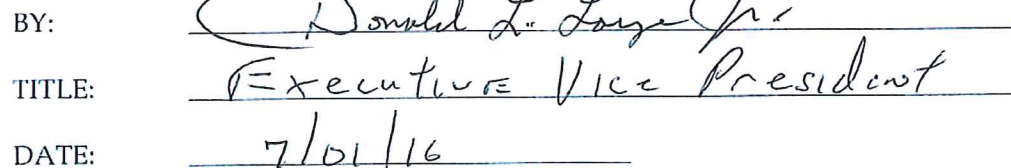 BY: Donald L. Large Jr.
TITLE: Executive Vice President
DATE: 7/01/16